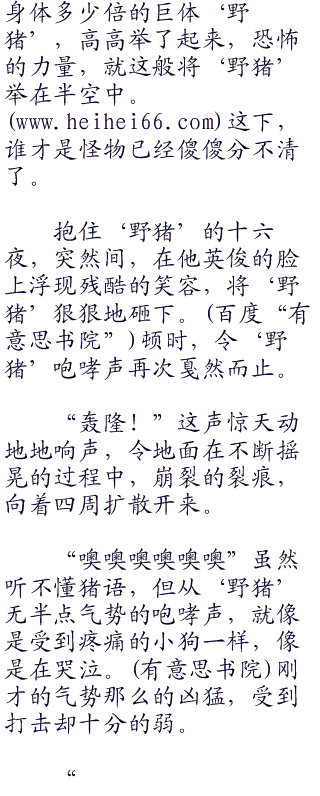 身体多少倍的巨体‘野
猪’，高高举了起来，恐怖
的力量，就这般将‘野猪’
举在半空中。
(www.heihei66.com)这下，
谁才是怪物已经傻傻分不清
了。
抱住‘野猪’的十六
夜，突然间，在他英俊的脸
上浮现残酷的笑容，将‘野
猪’狠狠地砸下。(百度“有
意思书院”)顿时，令‘野
猪’咆哮声再次戛然而止。
“轰隆！”这声惊天动
地地响声，令地面在不断摇
晃的过程中，崩裂的裂痕，
向着四周扩散开来。
“噢噢噢噢噢噢”虽然
听不懂猪语，但从‘野猪’
无半点气势的咆哮声，就像
是受到疼痛的小狗一样，像
是在哭泣。(有意思书院)刚
才的气势那么的凶猛，受到
打击却十分的弱。
“